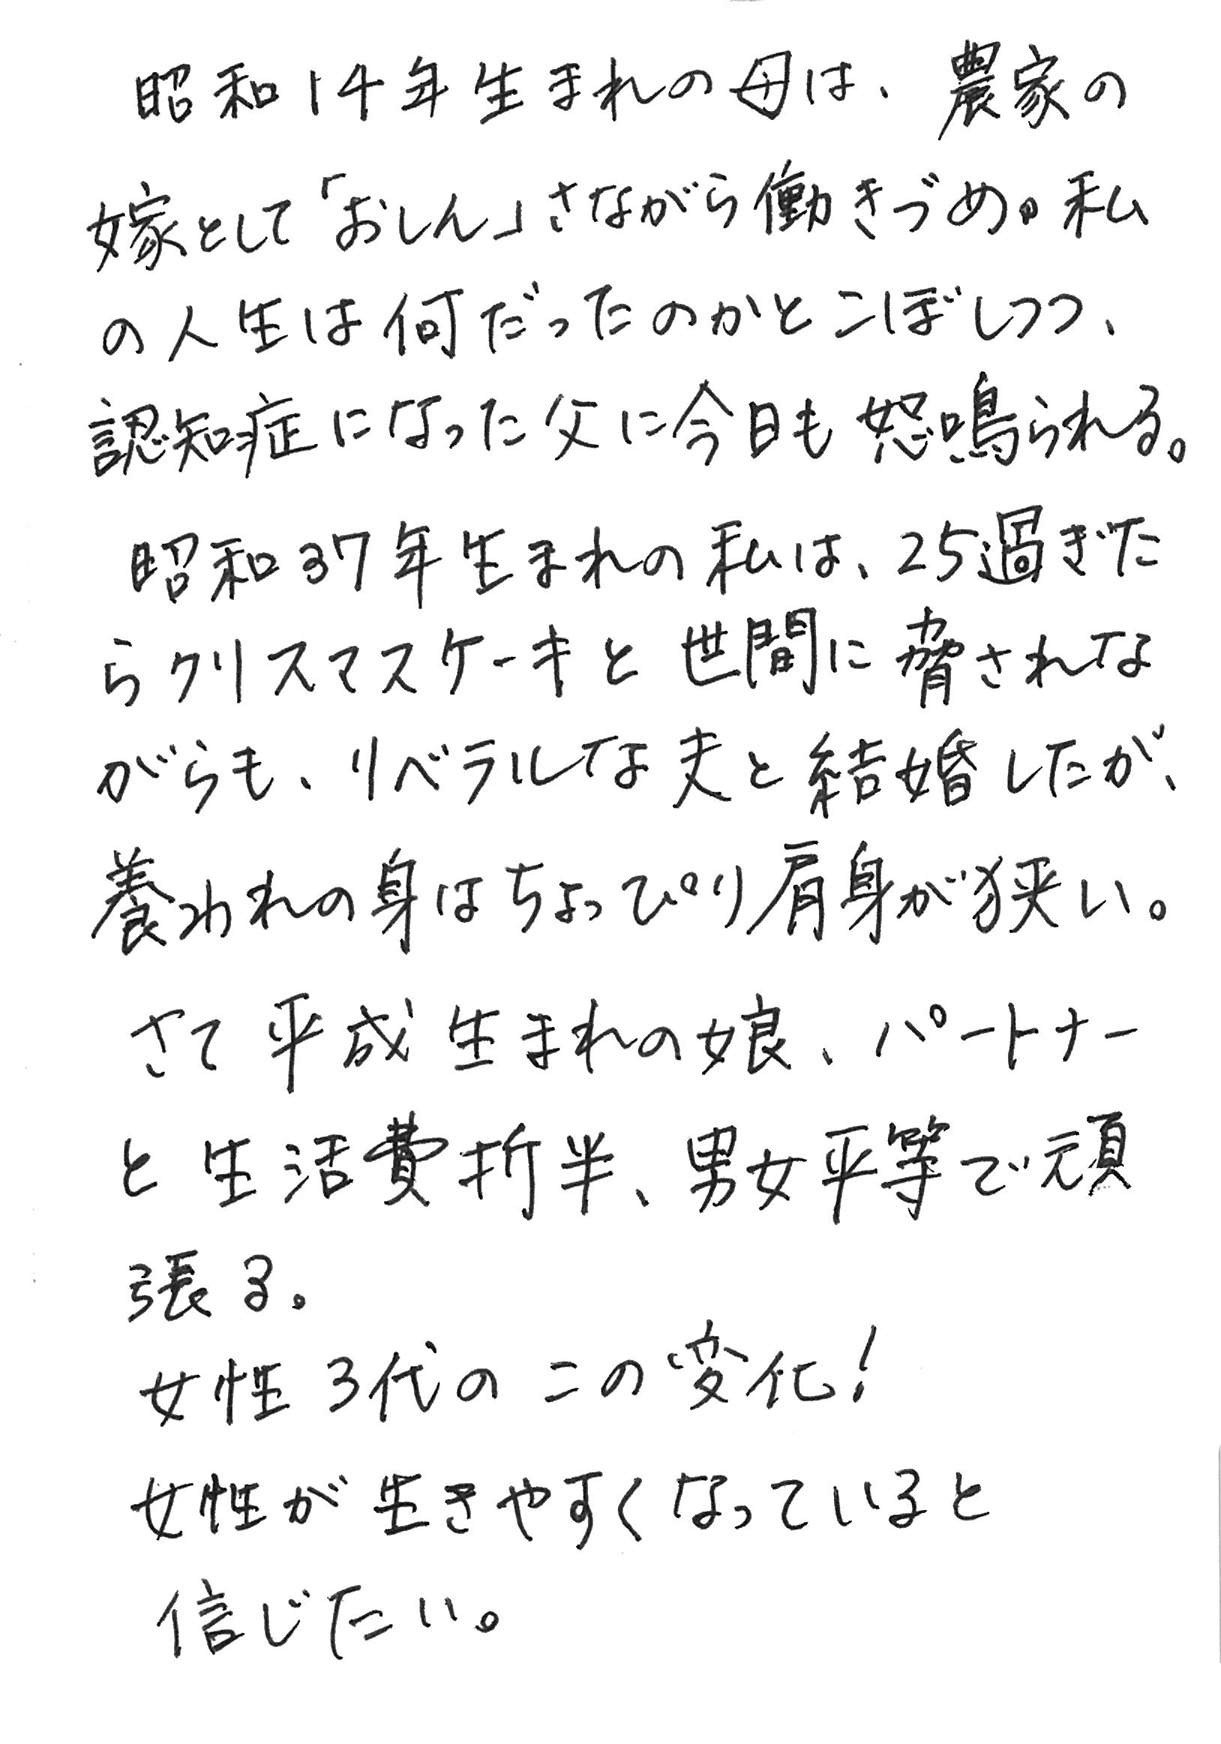 昭和14年生まれの母は、農家の
嫁として「おしん」さながら働きづめ。私
の人生は何だったのかとこぼしつつ、
認知症になった父に今日も怒鳴られる。
昭和37年生まれの私は、25過ぎた
らクリスマスケーキと世間に脅されな
がらも、リベラルな夫と結婚したが、
養われの身はちょっぴり肩身が狭い。
さて平成生まれの娘、パートナー
と生活費折半、男女平等で頑
張る。
女性3代のこの変化!
女性が生きやすくなっていると
信じたい。